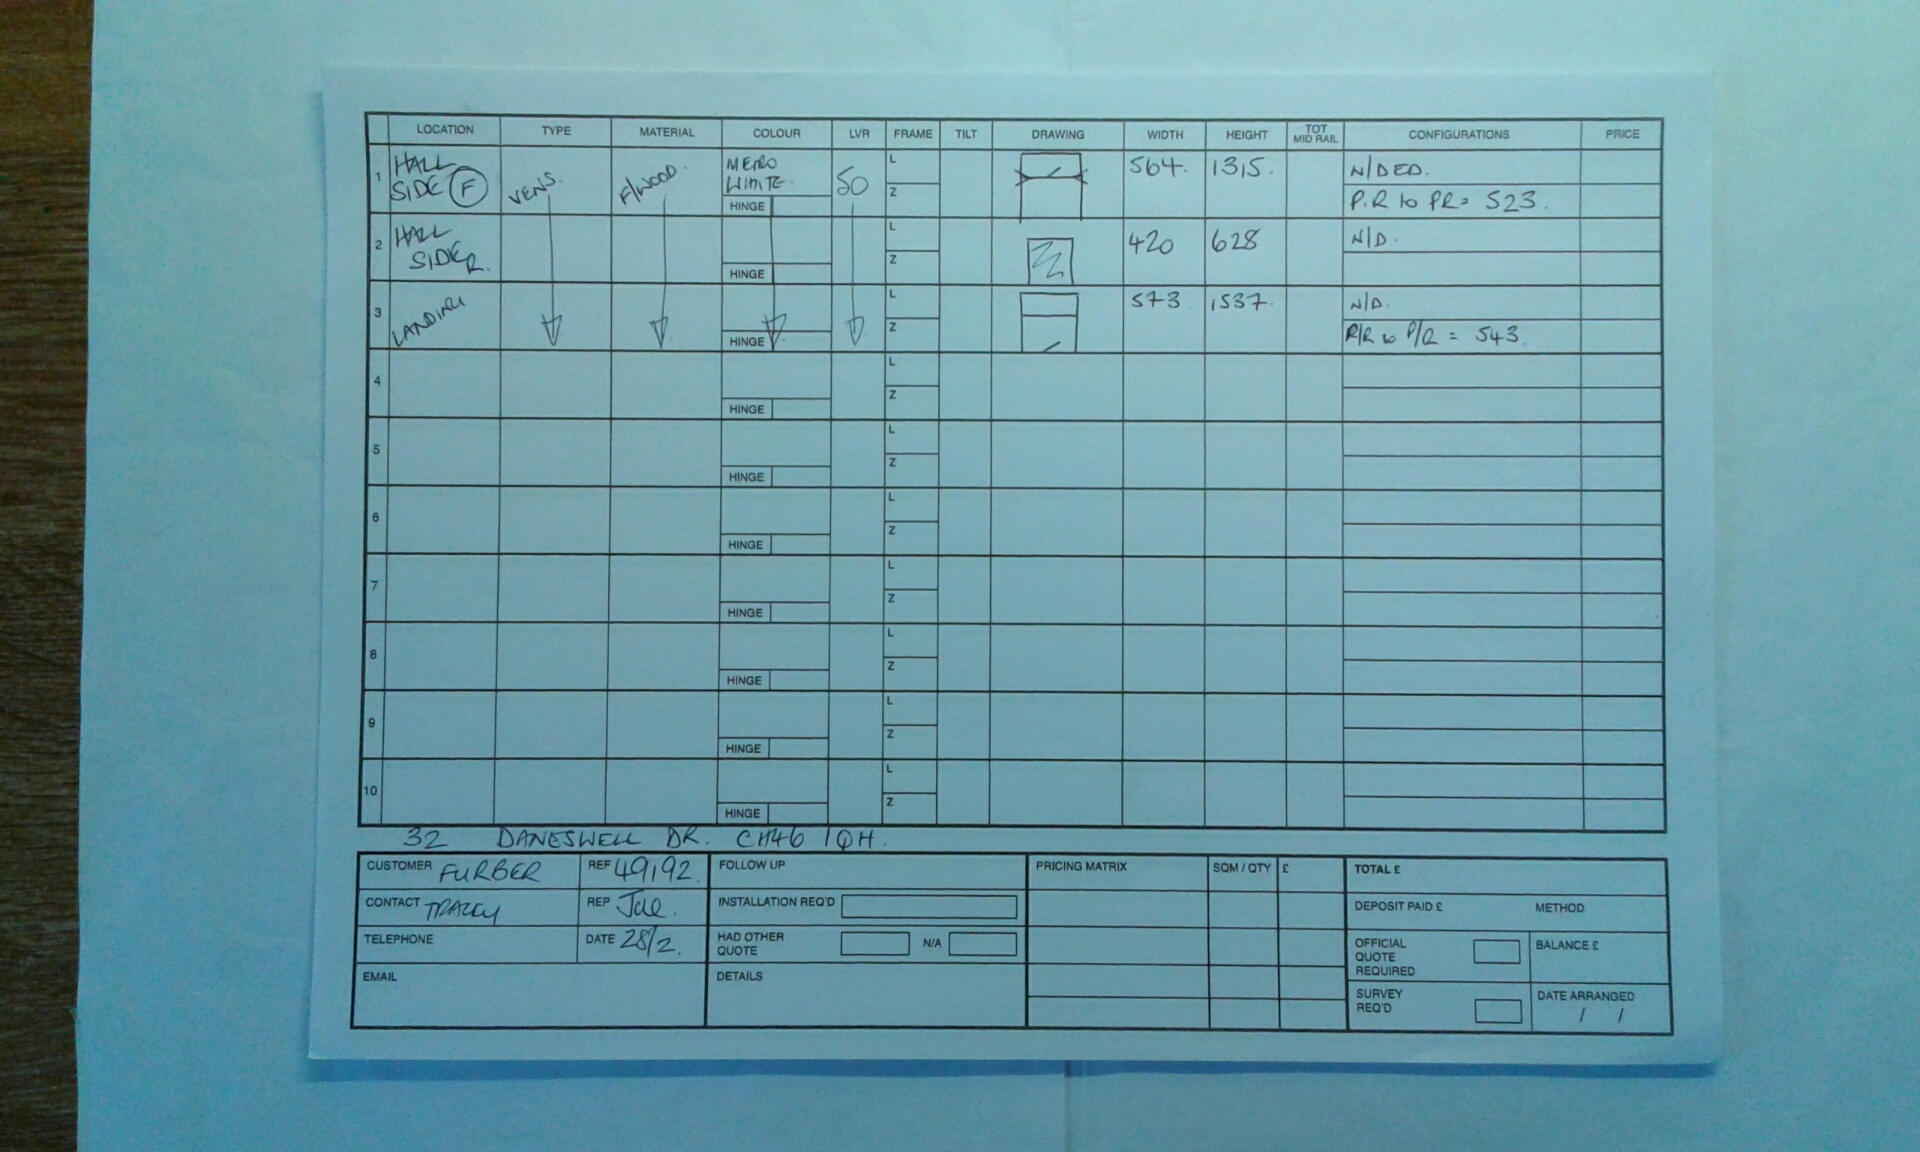 LOCATION TYPE MATERIAL COLOUR LVR FRAME TILT DRAWING WIDTH HEIGHT TOT MID RAIL CONFIGURATIONS PRICE
1 HALL SIDE (F) VENS. F/WOOD. METRO WHITE. HINGE 50 L Z 564. 1315. N/DED.
P.R to PR= 523.
2 HALL SIDE R. HINGE L Z 420 628 N/D.
3 LANDING HINGE L Z 573 1537. N/D.
P/R to P/R = 543.
4 HINGE L Z
5 HINGE L Z
6 HINGE L Z
7 HINGE L Z
8 HINGE L Z
9 HINGE L Z
10 HINGE L Z
32 DANESWELL DR. CH46 1QH.
CUSTOMER FURBER REF 49192. FOLLOW UP PRICING MATRIX SQM / QTY £ TOTAL £
CONTACT TRACEY REP INSTALLATION REQ'D DEPOSIT PAID £ METHOD
TELEPHONE DATE 28/2. HAD OTHER QUOTE N/A OFFICIAL QUOTE REQUIRED BALANCE £
EMAIL DETAILS SURVEY REQ'D DATE ARRANGED
/ /